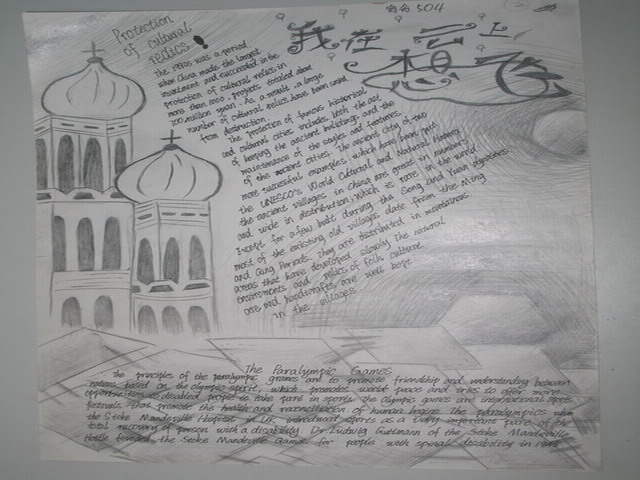 504
我在 云上
想飞
Protection
of cultural
relics!
The 1990s was a period
when China made the largest
investment and succeeded in the
protection of cultural relics in
more than 1000 projects totaled above
700 million yuan. As a result a large
number of cultural relics have been saved
from destruction.
The protection of famous historical
and cultural cities includes both the aid
of keeping the ancient buildings and the
maintenance of the styles and features
of the ancient cities. The ancient city of two
more successful examples which have been put
the UNESCO's World Cultural and Natural History
the ancient villages in China are great in number
and wide in distribution, which is rare in the world
Except for a few built during the Song and Yuan dynasties
most of the existing old villages date from the Ming
and Qing Periods. They are distributed in mountainous
areas that have developed slowly. The natural
environments and relics of folk culture
are and handicrafts are well kept
in the villages
The Paralympic Games
The principles of the paralympic games and to promote friendship and understanding between
nations based on the olympic spirit, which promotes world peace and links to offer more
opportunities to disabled people to take part in sports the olympic games are international sports
festivals That promote the health and reconciliation of human beings The paralympics when
the Stoke Mandeville Hospital in UK introduced sports as a very important part of the
total recovery of person with a disability. Dr Ludwig Guttmann of the Stoke Mandeville
founded the Stoke Mandeville Games for people with spinal disability in